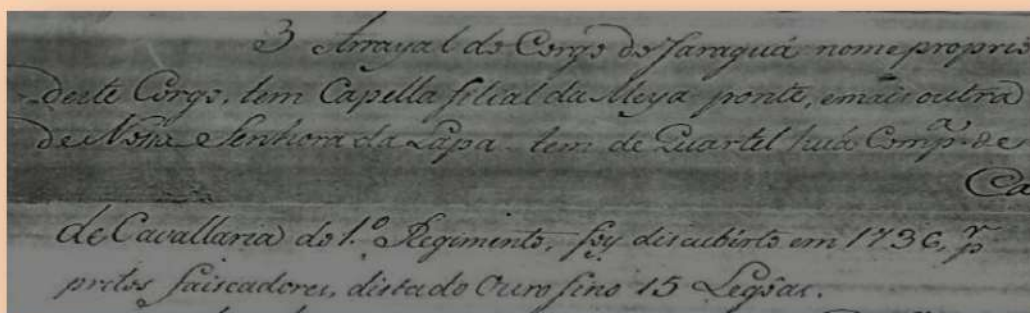 3 Arrayal do Corgo do Jaraguá nome proprio
deste Corgo, tem Capella filial da Meya ponte, e mais outra
de Nossa Senhora da Lapa tem de Quartel huã Comp.ª de
Ca
de Cavallaria do 1.º Regimento, foy discubirto em 1736, p.r
pretos faiscadores, dista do Ouro fino 15 Legoas.